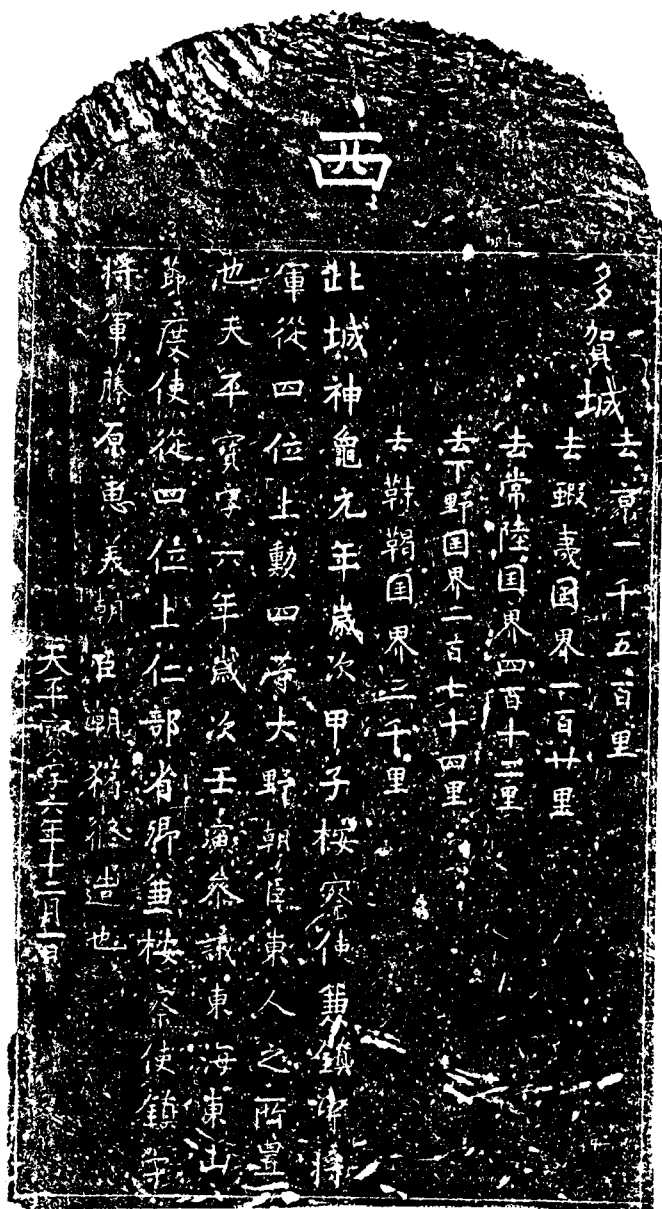 西
多賀城
去京一千五百里
去蝦夷国界一百廿里
去常陸国界四百十二里
去下野国界二百七十四里
去靺鞨国界三千里
此城神龜元年歳次甲子桉察使兼鎮守將
軍從四位上勳四等大野朝臣東人之所置
也天平寶字六年歳次壬寅參議東海東山
節度使從四位上仁部省卿兼桉察使鎮守
將軍藤原惠美朝臣朝獦修造也
天平寶字六年十二月一日